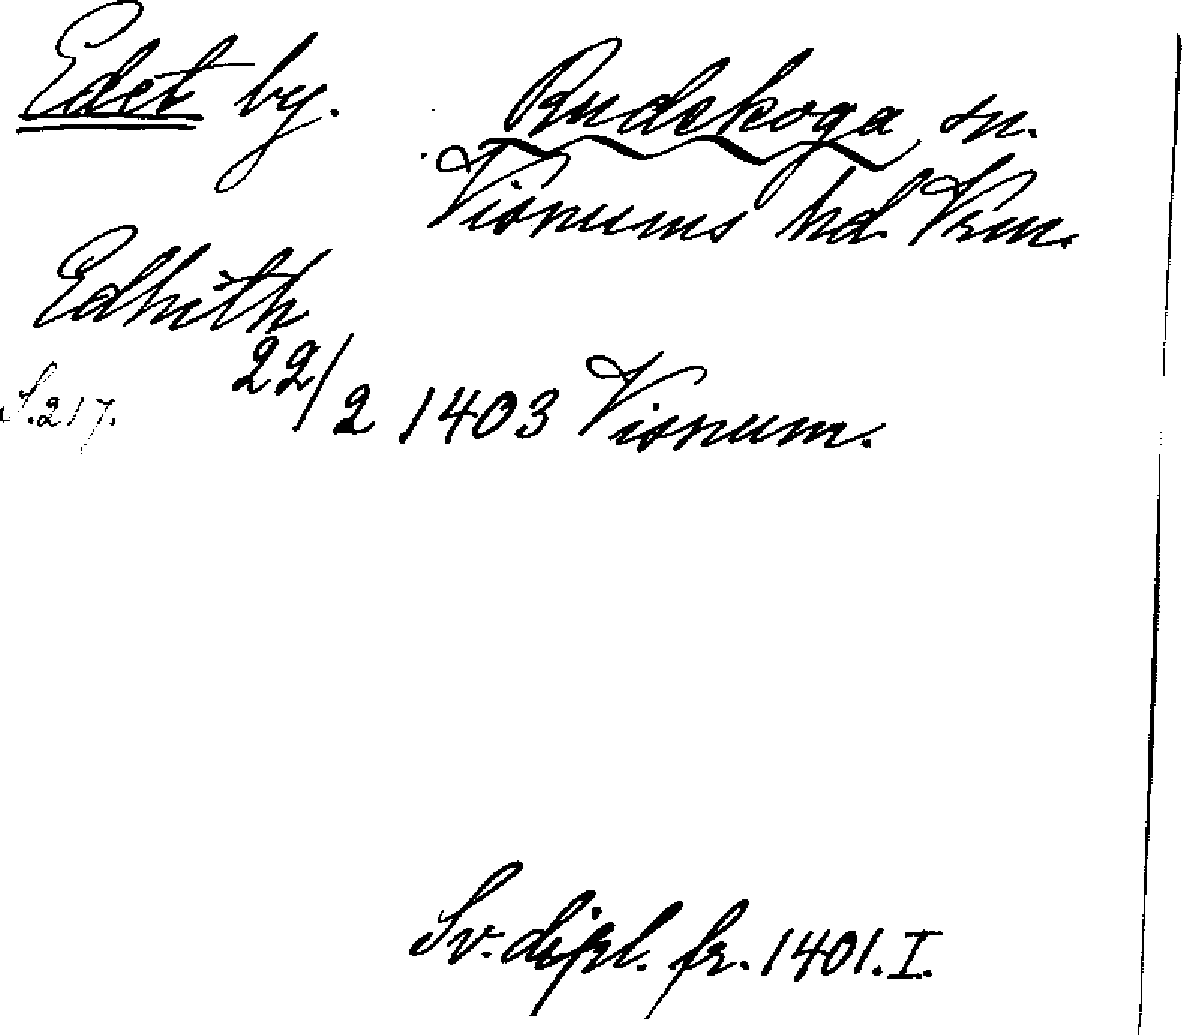 Edet by.
Rudskoga sn.
Visnums hd. Vrm.
Edhith
S. 217.
22/2 1403 Visnum.
Sv. dipl. fr. 1401. I.